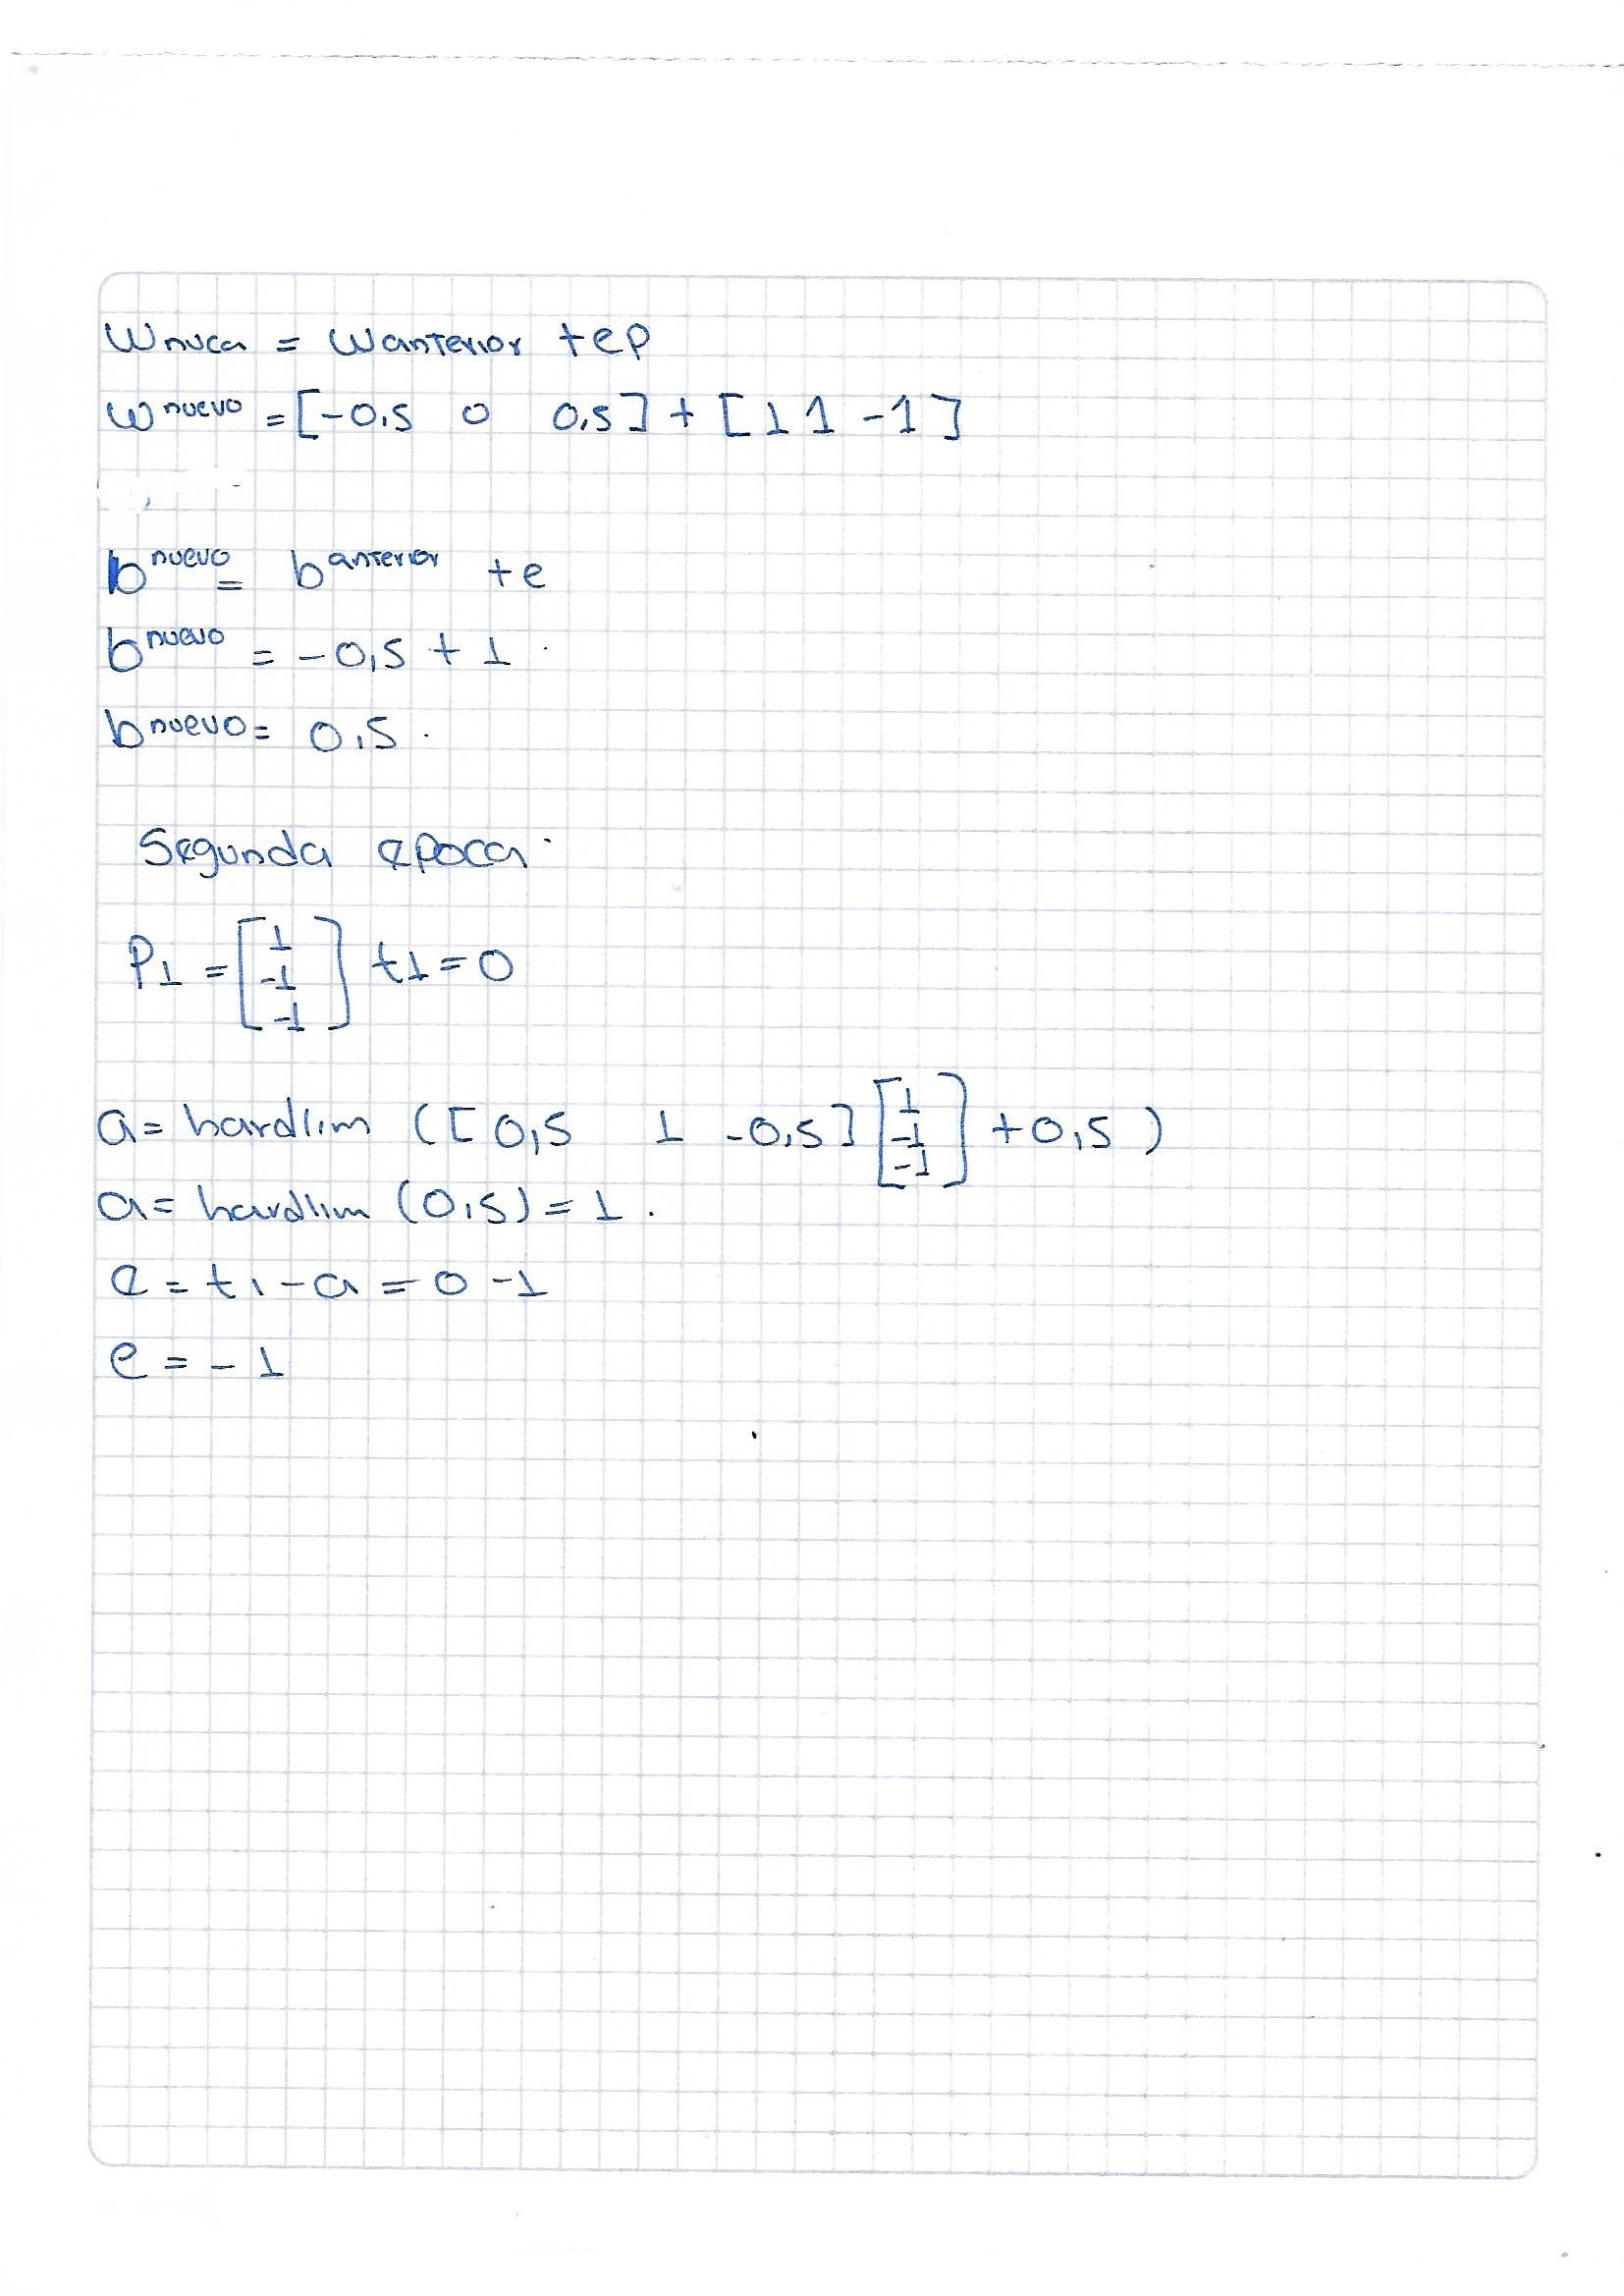 Wnuca = Wanterior +ep
W nuevo = [-0,5 0 0,5] + [1 1 -1]
b nuevo = b anterior +e
b nuevo = -0,5 + 1.
b nuevo = 0,5.
Segunda epoca.
P1 = [1 -1 -1] t1 = 0
a = hardlim ([0,5 1 -0,5] [1 -1 -1] +0,5)
a = hardlim (0,5) = 1.
e = t1 - a = 0 -1
e = -1